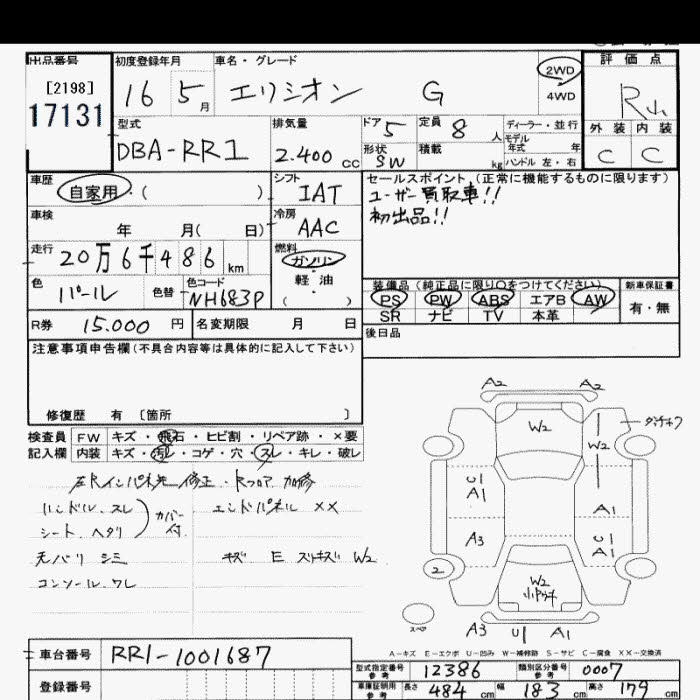 出品番号
[2198]
17131
初度登録年月
16 5月
車名・グレード
エリシオン G
2WD
4WD
評価点
R
外装 内装
C C
型式
DBA-RR1
排気量
2.400cc
ドア 5
定員 8人
形状 SW
積載 kg
ディーラー・並行
モデル年式 年
ハンドル 左・右
車歴
自家用・( )
シフト
IAT
セールスポイント(正常に機能するものに限ります)
ユーザー買取車!!
初出品!!
車検
年 月( 日)
冷房
AAC
走行
20万6千486km
燃料
ガソリン
軽油
( )
色
パール
色替
色コード
NH683P
装備品(純正品に限り○をつけてください)
PS PW ABS エアB AW
SR ナビ TV 本革
新車保証書
有・無
R券 15.000円
名変期限 月 日
後日品
注意事項申告欄(不具合内容等は具体的に記入して下さい)
修復歴 有 〔箇所 〕
検査員 FW キズ・飛石・ヒビ割・リペア跡・×要
記入欄 内装 キズ・汚レ・コゲ・穴・スレ・キレ・破レ
ハンドル スレ
シート ヘタリ
カバー付
エンドパネル ××
天バリ シミ
キズ E スリキズ W2
コンソール ワレ
A2 A2
W2
W2
U1
A1
A1
A3
U1
A1
2
W2
スペア
A3 U1 A1
A-キズ E-エクボ U-凹み W-補修跡 S-サビ C-腐食 ××-交換済
車台番号 RR1-1001687
登録番号
型式指定番号 参考 12386
類別区分番号 参考 0007
車庫証明用 参考 長さ 484cm 幅 183cm 高さ 179cm